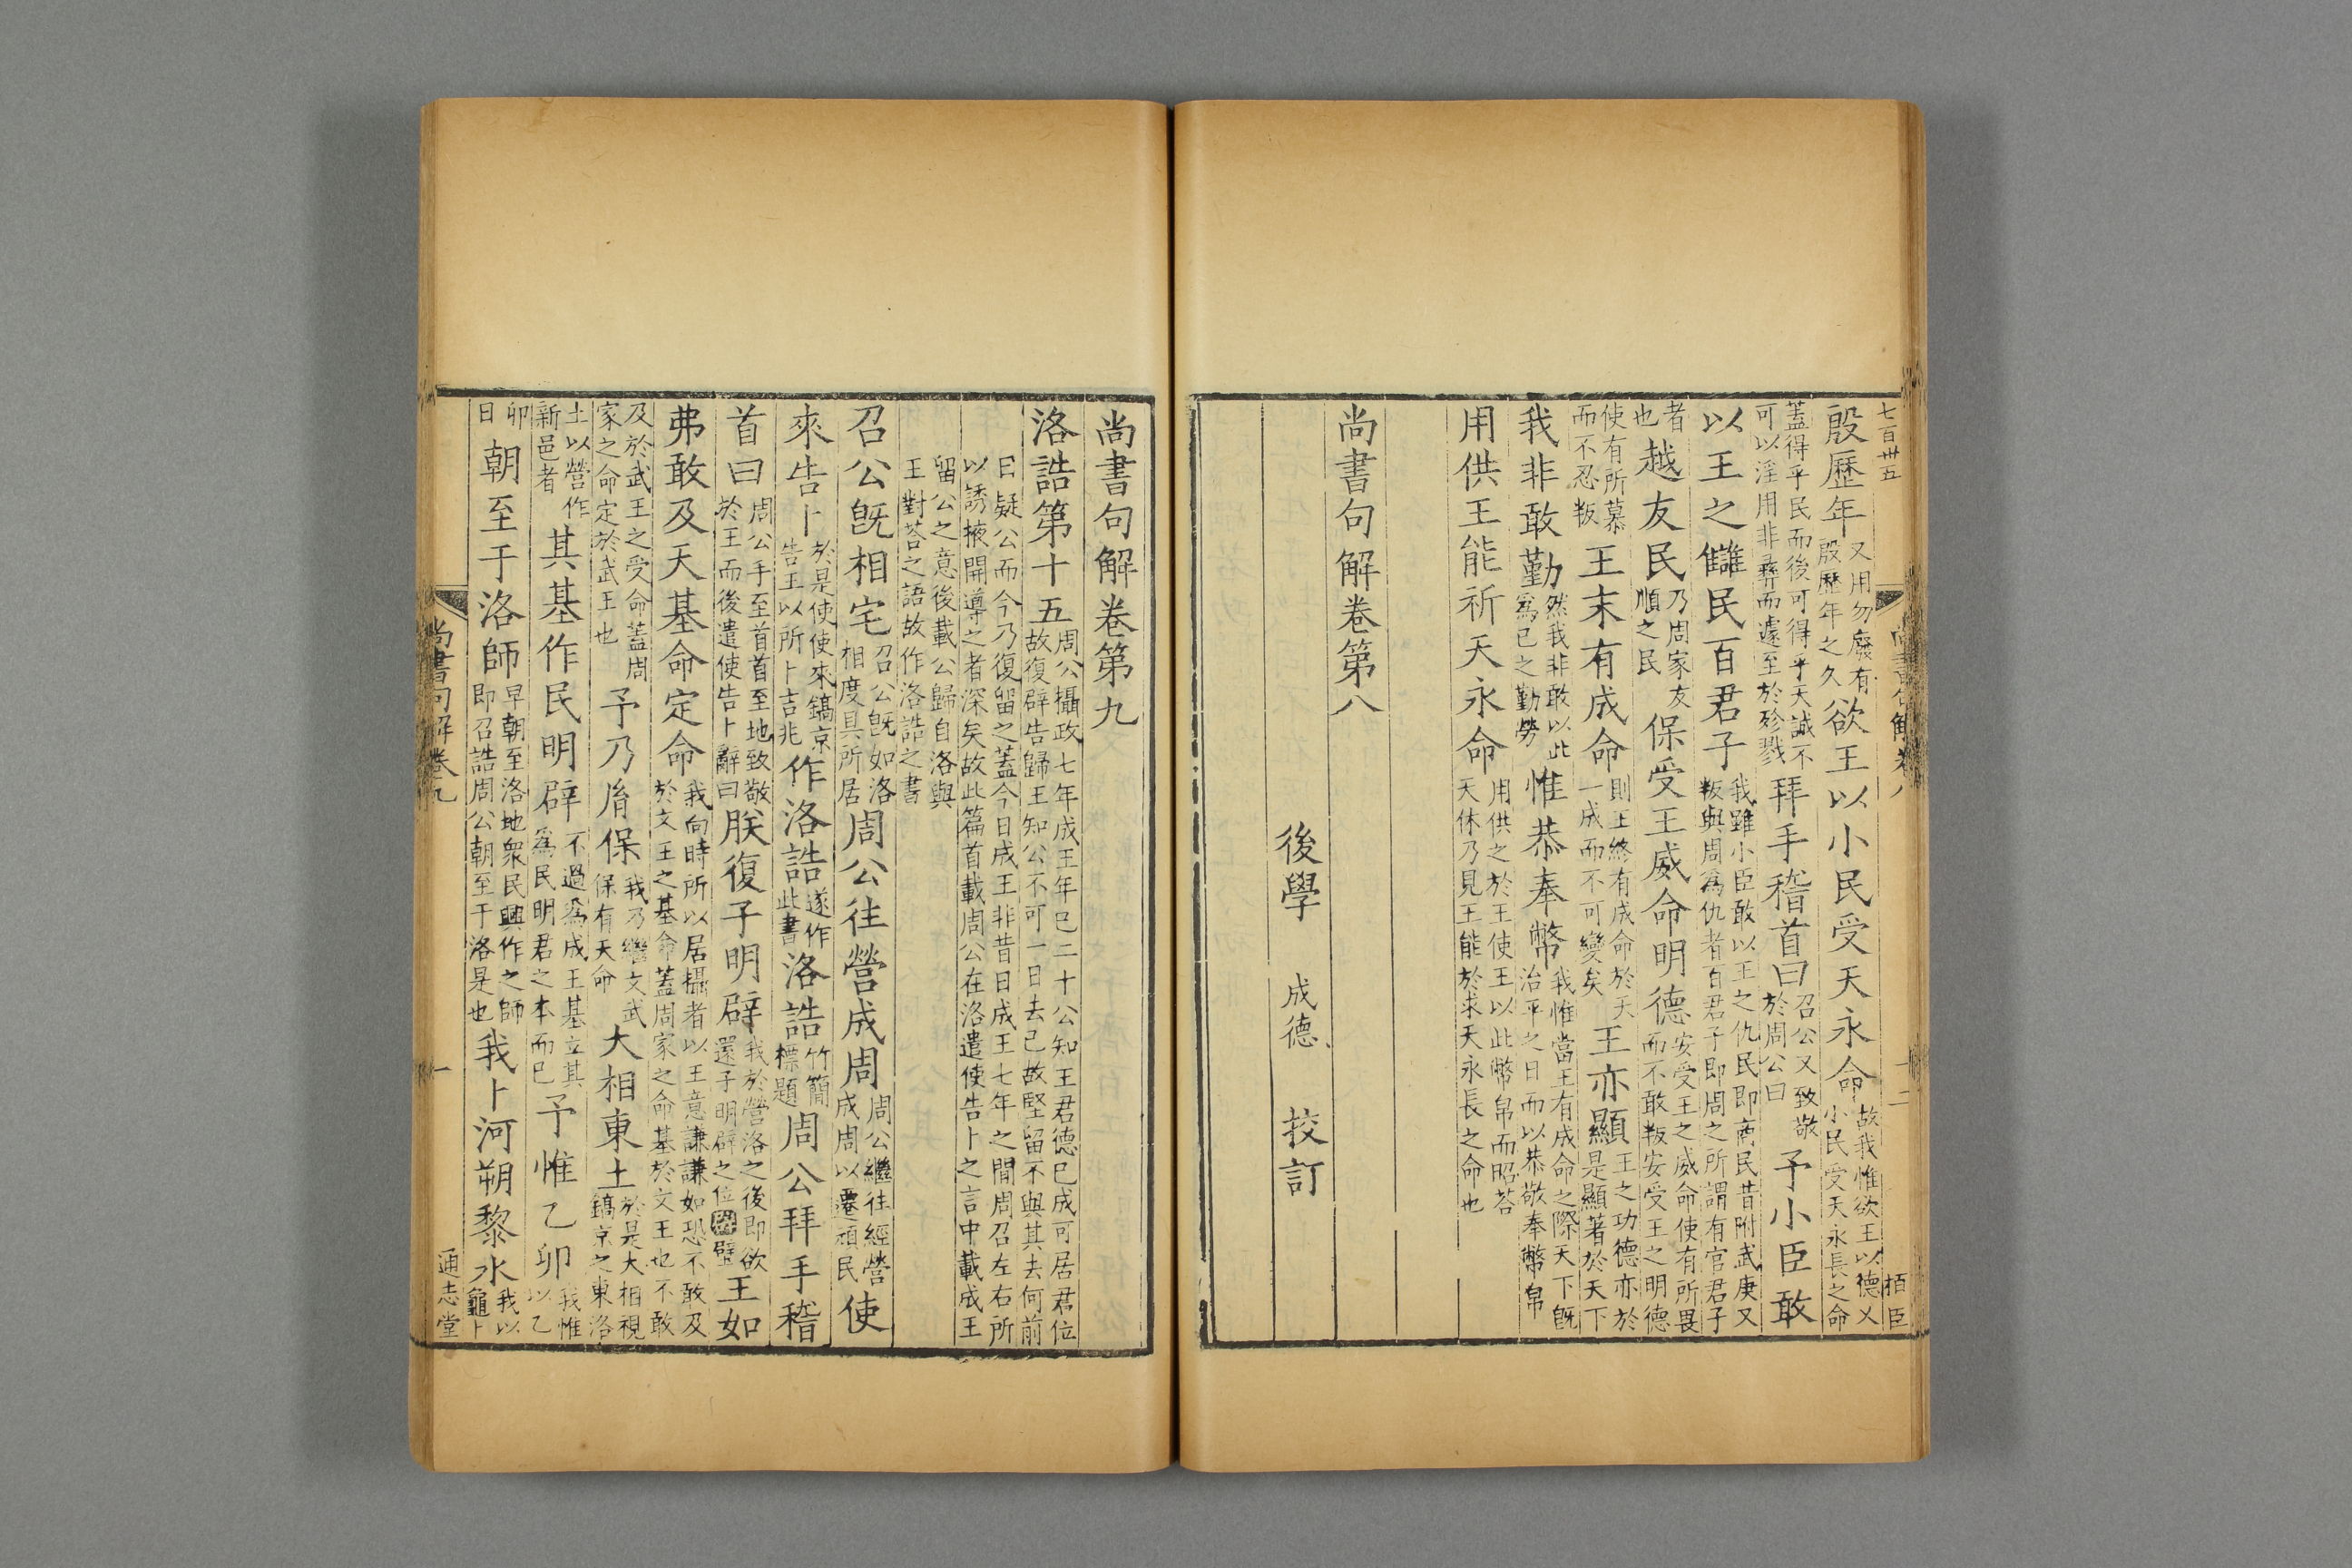 七百卅五
尚書句解卷八
十二
栢臣
殷歷年又用勿廢有殷歷年之久欲王以小民受天永命故我惟欲王以德乂小民受天永長之命
蓋得乎民而後可得乎天誠不可以淫用非彝而遽至於殄戮拜手稽首曰召公又致敬於周公曰予小臣敢
以王之讎民百君子我雖小臣敢以王之仇民即商民昔附武庚又叛與周爲仇者百君子即周之所謂有官君子
者也越友民乃周家友順之民保受王威命明德安受王之威命使有所畏而不敢叛安受王之明德
使有所慕而不忍叛王末有成命則王終有成命於天一成而不可變矣王亦顯王之功德亦於是顯著於天下
我非敢勤然我非敢以此爲已之勤勞惟恭奉幣我惟當王有成命之際天下旣治平之日而以恭敬奉幣帛
用供王能祈天永命用供之於王使王以此幣帛而昭荅天休乃見王能於求天永長之命也
尚書句解卷第八
後學 成德 挍訂
尚書句解卷第九
洛誥第十五周公攝政七年成王年巳二十公知王君德巳成可居君位故復辟告歸王知公不可一日去己故堅留不與其去何前
曰疑公而今乃復留之蓋今日成王非昔日成王七年之間周召左右所以誘掖開導之者深矣故此篇首載周公在洛遣使告卜之言中載成王
留公之意後載公歸自洛與王對荅之語故作洛誥之書
召公旣相宅召公旣如洛相度其所居周公往營成周周公繼往經營成周以遷頑民使
來告卜於是使使來鎬京告王以所卜吉兆作洛誥遂作此書洛誥竹簡標題周公拜手稽
首曰周公手至首首至地致敬於王而後遣使告卜辭曰朕復子明辟我於營洛之後即欲還子明辟之位辟璧王如
弗敢及天基命定命我向時所以居攝者以王意謙謙如恐不敢及於文王之基命蓋周家之命基於文王也不敢
及於武王之受命蓋周家之命定於武王也予乃胤保我乃繼文武保有天命大相東土於是大相視鎬京之東洛
土以營作新邑者其基作民明辟不過爲成王基立其爲民明君之本而已予惟乙卯我惟以乙
卯日朝至于洛師早朝至洛地衆民興作之師即召誥周公朝至于洛是也我卜河朔黎水我以龜卜
尚書句解卷九
一
通志堂